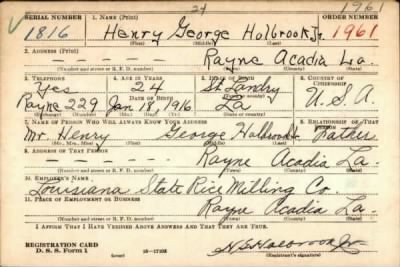 24 1961
SERIAL NUMBER 1. NAME (Print) ORDER NUMBER
V 1816 Henry George Holbrook Jr. 1961
(First) (Middle) (Last)
2. ADDRESS (Print)
— — — — — Rayne Acadia La.
(Number and street or R. F. D. number) (Town) (County) (State)
3. TELEPHONE 4. AGE IN YEARS 5. PLACE OF BIRTH 6. COUNTRY OF CITIZENSHIP
Yes 24 St. Landry
DATE OF BIRTH (Town or county)
Rayne 229 Jan 18, 1916 La U.S.A.
(Exchange) (Number) (Mo.) (Day) (Yr.) (State or country)
7. NAME OF PERSON WHO WILL ALWAYS KNOW YOUR ADDRESS 8. RELATIONSHIP OF THAT PERSON
Mr. Henry George Holbrook Father
(Mr., Mrs., Miss) (First) (Middle) (Last)
9. ADDRESS OF THAT PERSON
— — — — — Rayne Acadia La.
(Number and street or R. F. D. number) (Town) (County) (State)
10. EMPLOYER'S NAME
Louisiana State Rice Milling Co.
11. PLACE OF EMPLOYMENT OR BUSINESS
Rayne Acadia La.
(Number and street or R. F. D. number) (Town) (County) (State)
I AFFIRM THAT I HAVE VERIFIED ABOVE ANSWERS AND THAT THEY ARE TRUE.
REGISTRATION CARD
D. S. S. Form 1 (over) H G Holbrook Jr
(Registrant's signature)